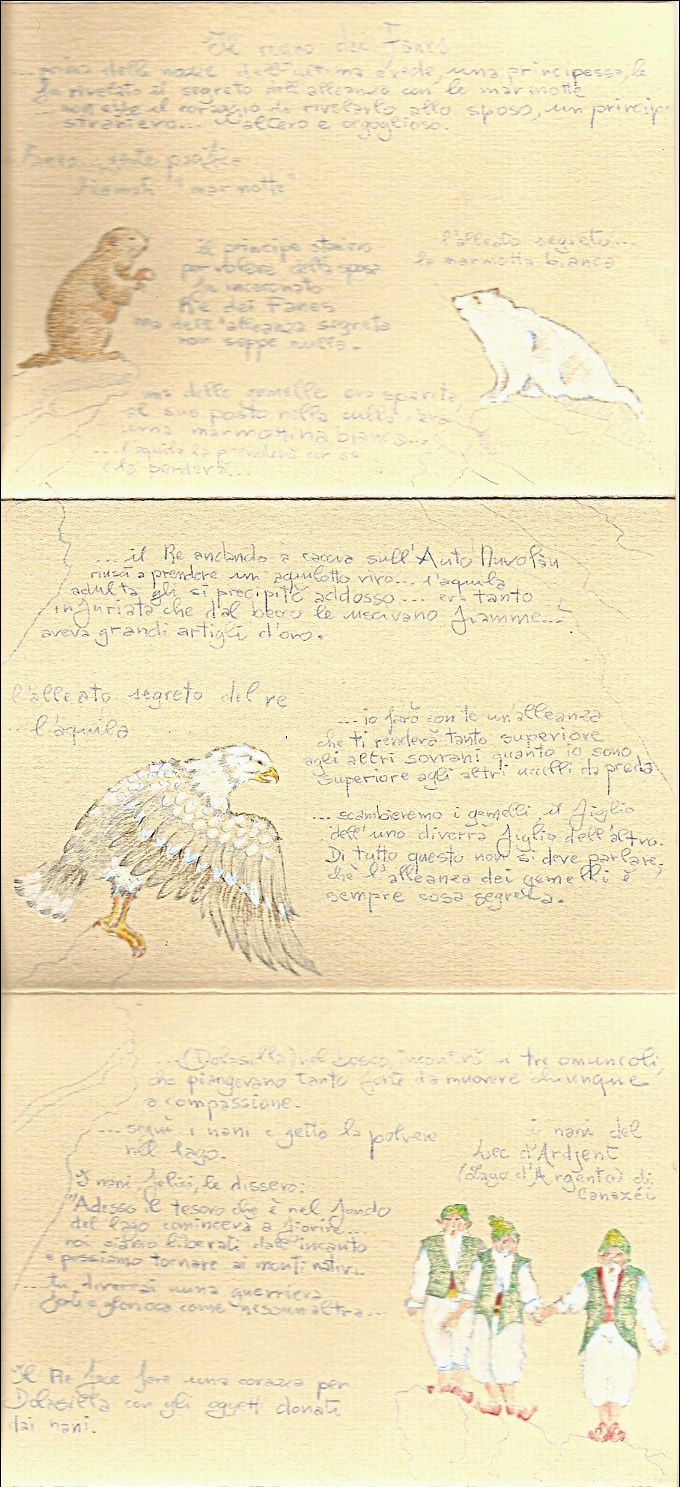 Il regno dei Fanes
...prima delle nozze dell'ultima erede, una principessa, le
fu rivelato il segreto dell'alleanza con le marmotte
... non ebbe il coraggio di rivelarlo allo sposo, un principe
straniero... altero e orgoglioso.
Fanes... gente pacifica
chiamati "marmotte"
il principe straniero
per volere della sposa
fu incoronato
Re dei Fanes
ma dell'alleanza segreta
non seppe nulla.
l'alleato segreto...
la marmotta bianca
una delle gemelle era sparita,
al suo posto nella culla c'era
una marmottina bianca...
...l'aquila la prenderà con sé
e la perderà...
...il Re andando a caccia sull'Auto Nuvolàu
riuscì a prendere un aquilotto vivo... l'aquila
adulta gli si precipitò addosso... era tanto
infuriata che dal becco le uscivano fiamme...
aveva grandi artigli d'oro.
l'alleato segreto del re
...l'aquila
...io farò con te un'alleanza
che ti renderà tanto superiore
agli altri sovrani quanto io sono
superiore agli altri uccelli da preda
...scambieremo i gemelli, il figlio
dell'uno diverrà figlio dell'altro.
Di tutto questo non si deve parlare,
ché l'alleanza dei gemelli è
sempre cosa segreta.
...(Dolasilla) nel bosco incontrò tre omuncoli
che piangevano tanto forte da muovere chiunque
a compassione.
...seguì i nani e gettò la polvere
nel lago.
i nani del
Lec d'Ardjent
(Lago d'Argento) di
Canazéi
I nani, felici, le dissero:
"Adesso il tesoro che è nel fondo
del lago comincerà a fiorire...
noi siamo liberati dall'incanto
e possiamo tornare ai monti nativi.
...tu diverrai una guerriera
forte e gloriosa come nessun'altra...
Il Re fece fare una corazza per
Dolasilla con gli oggetti donati
dai nani.